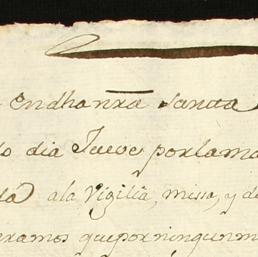 Endha nr̃a Santa
dia Jueve porlama
ala Vigilia, missa, y de
eramos queporningunm